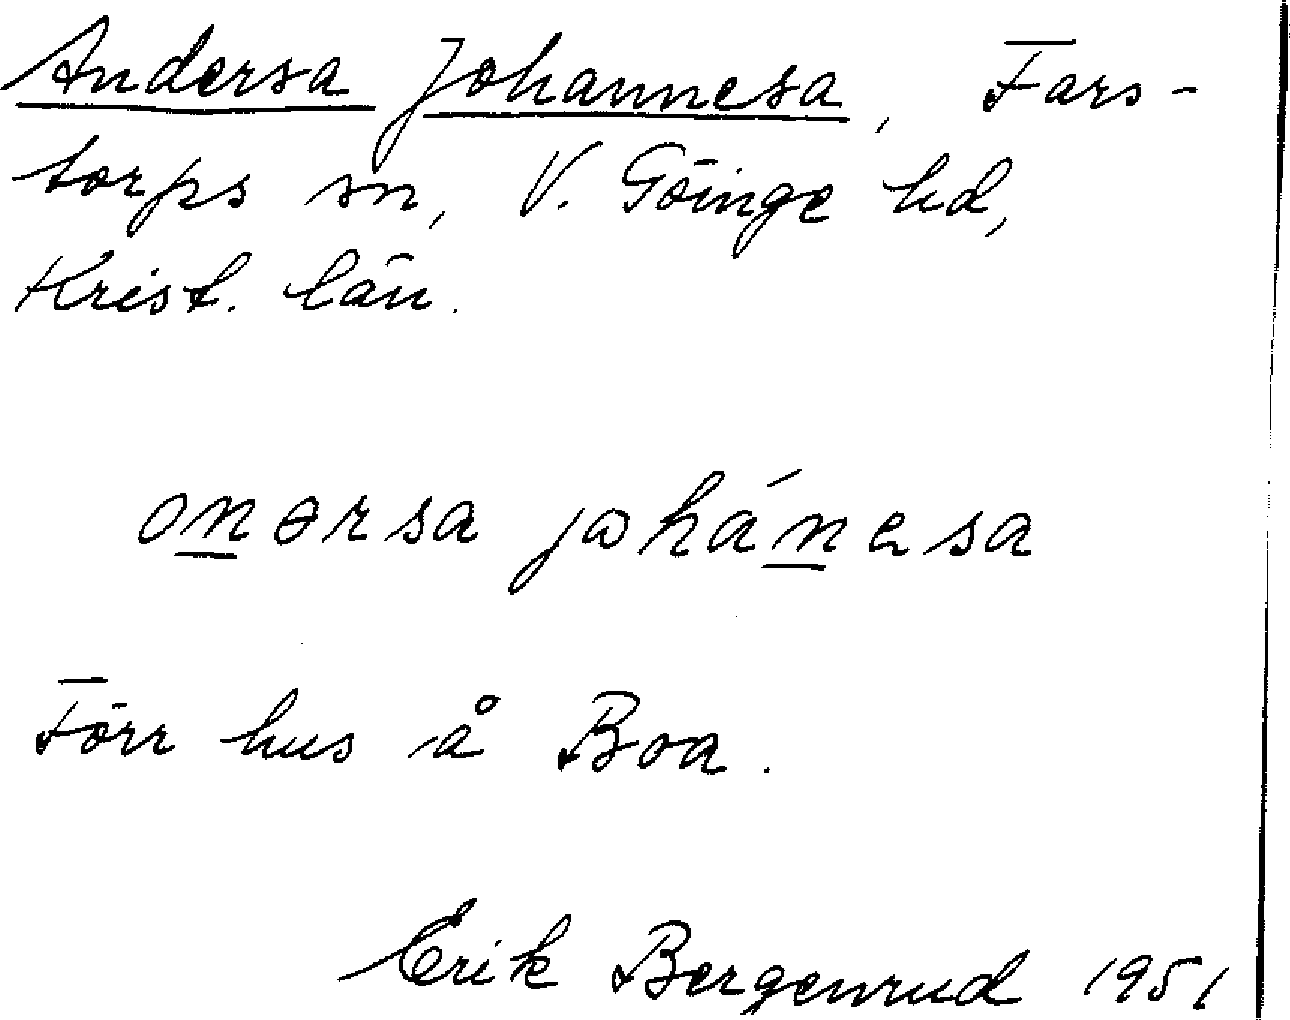 Andersa Johannesa, Fars-
torps sn, V. Göinge hd,
Krist. län.
onersa johánesa
Förr hus å Boa.
Erik Bergenrud 1951